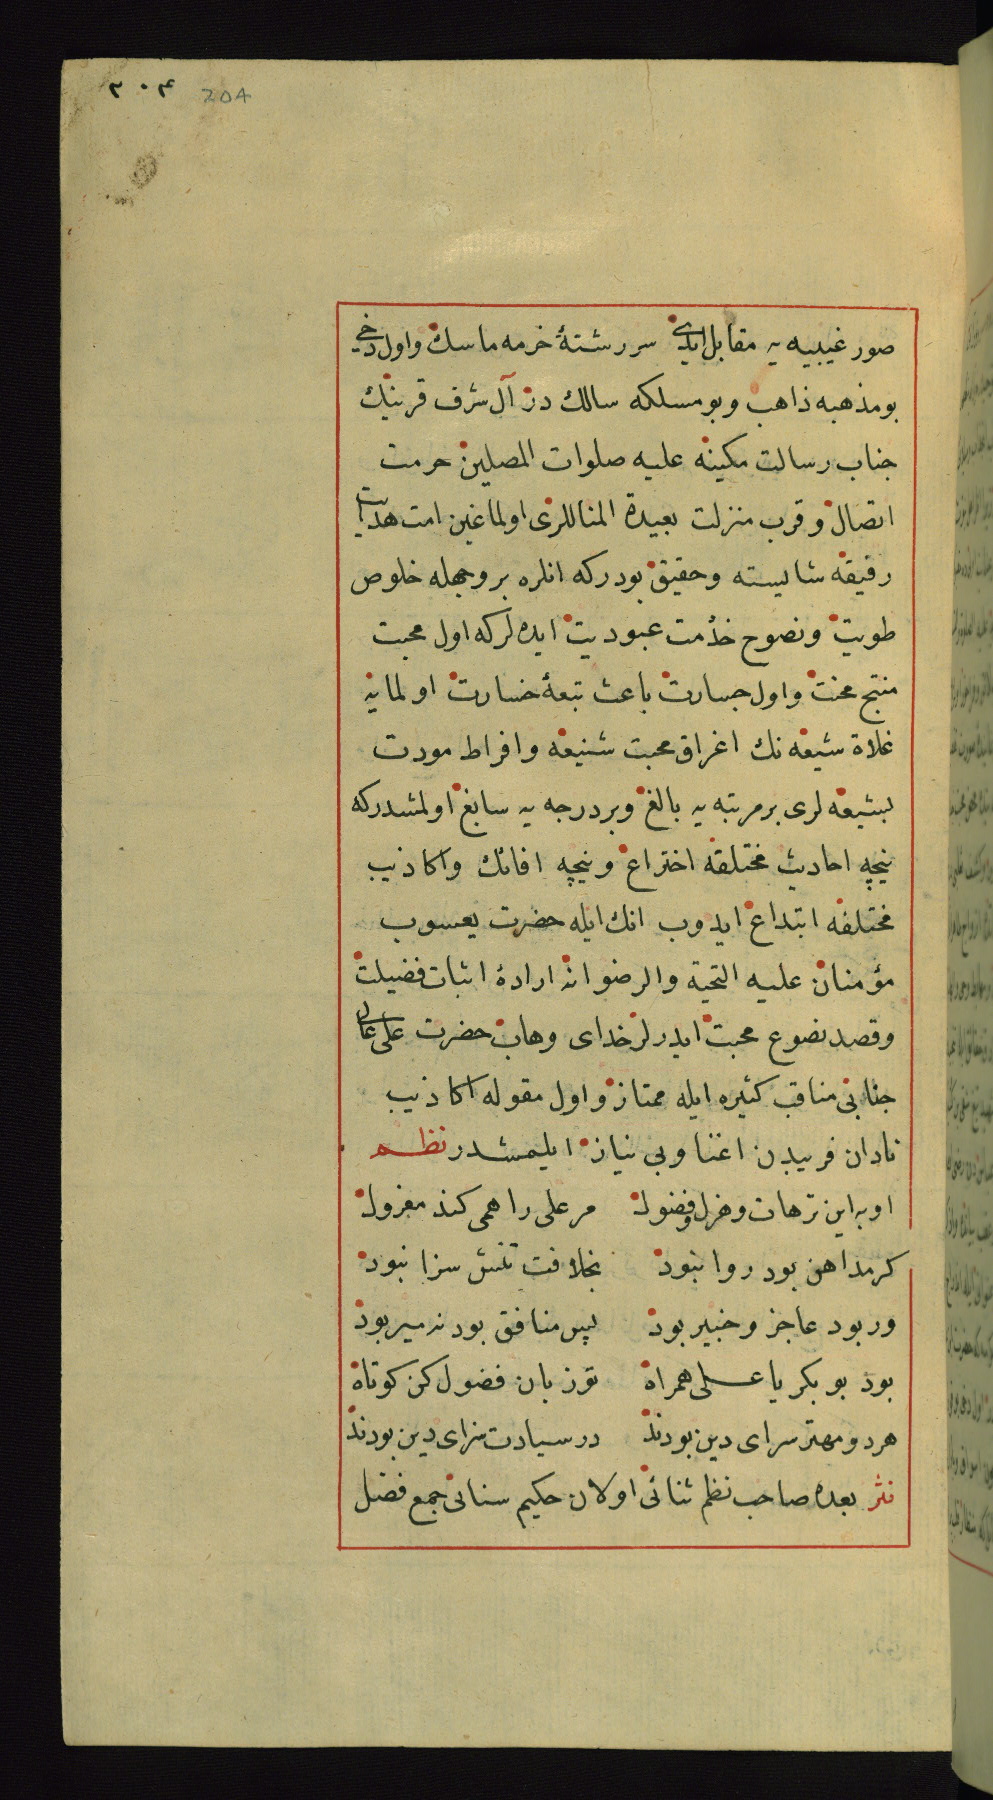 ٢٠۴ 204
صور غیبیه یه مقابل ایدی سررشتهٔ خرمه ماسك واول دخی
بومذهبه ذاهب وبومسلكه سالك در آل شرف قرینك
جناب رسالت مكینه علیه صلوات المصلین حرمت
اتصال وقرب منزلت بعیدة المناللری اولماغین امت هدایت
رفیقه شایسته وحقیق بودركه انلره بر وجهله خلوص
طویت ونصوح خدمت عبودیت ایده لركه اول محبت
منتج محنت واول جسارت باعث تبعهٔ خسارت اولمایه
غلاة شیعه نك اغراق محبت شنیعه وافراط مودت
بشیعه لری بر مرتبه یه بالغ وبر درجه یه سابغ اولمشدركه
نیچه احادیث مختلقه اختراع ونیچه افائك واكاذیب
مختلفه ابتداع ایدوب انك ایله حضرت یعسوب
مؤمنان علیه التحیة والرضوانه ارادهٔ اثبات فضیلت
وقصد نضوع محبت ایدرلر خدای وهاب حضرت علی عالی
جنابی مناقب كثیره ایله ممتاز واول مقوله اكاذیب
نادان فریبدن اغنا وبی نیاز ایلیمشدر نظم
او به این ترهات وهزل وفضول مر علی را همی كند معزول
كر مداهن بود روا نبود بخلافت تنش سزا نبود
ور بود عاجز وخبیر بود پس منافق بود نه میر بود
بود بوبكر یا علی همراه تو زبان فضول كن كوتاه
هر دو مهتر سرای دین بودند در سیادت سزای دین بودند
نثر بعده صاحب نظم ثنائی اولان حكیم سنائی جمع فضل